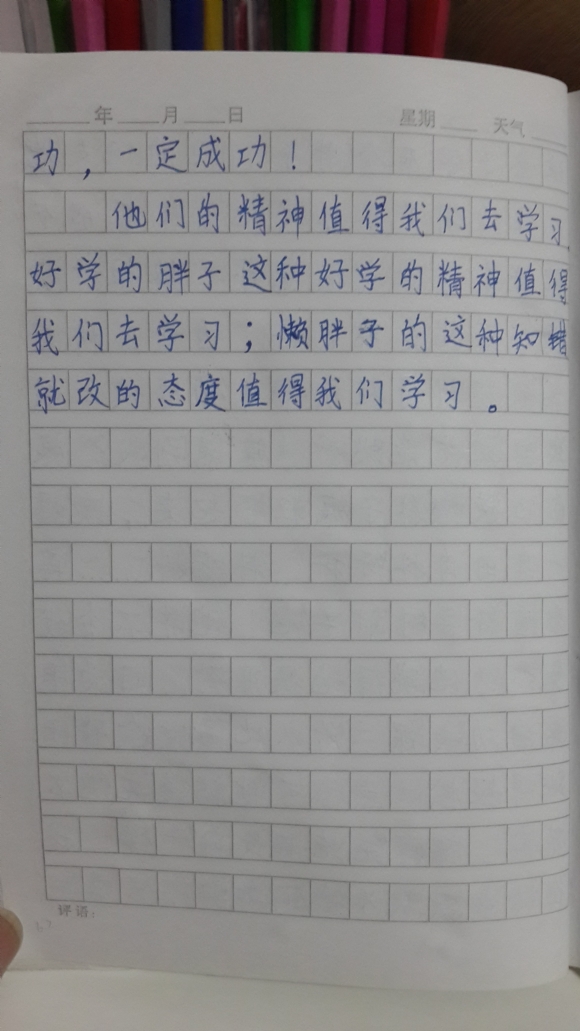 年 月 日 星期 天气
功，一定成功！
他们的精神值得我们去学习，
好学的胖子这种好学的精神值得
我们去学习；懒胖子的这种知错
就改的态度值得我们学习。
评语：